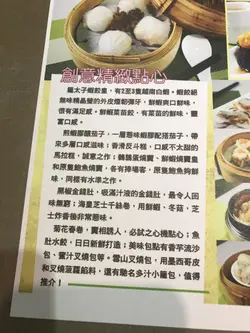 創意精緻點心
龍太子蝦餃皇，有2至3隻越南白蝦，蝦餃絕
無味精晶瑩的外皮爆韌彈牙，鮮蝦爽口鮮味，
很有滿足感。鮮蝦菜苗餃，有菜苗的鮮味，豐
富口感。
煎蝦膠釀茄子，一層惹味蝦膠配搭茄子，帶
來多層口感滋味；香滑反斗糕，口感大不同的
馬拉糕，誠意之作；鶴鶉蛋燒賣、鮮蝦燒賣皇
和原隻鮑魚燒賣，各有捧場客，原隻鮑魚燒賣夠鮮
味，同樣有水準之作。
黑椒金錢肚，吸滿汁液的金錢肚，最令人回
味無窮；海皇芝士千絲卷，用鮮蝦、冬菇、芝
士炸香後非常惹味。
菊花春卷，賣相誘人，必試之心機點心；魚
肚水餃，日日新鮮打造；美味包點有香芋流沙
包、蜜汁叉燒包等。雪山叉燒包，用墨西哥皮
和叉燒菠蘿餡料，還有馳名多汁小籠包，值得
推介！